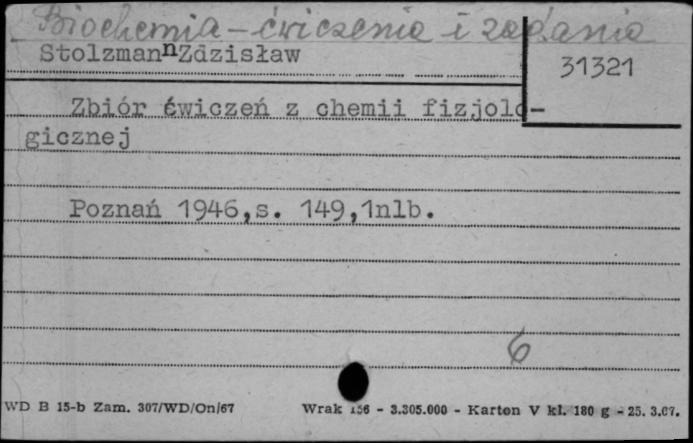 Biochemia - ćwiczenia i zadania
Stolzmann Zdzisław
31321
Zbiór ćwiczeń z chemii fizjolo-
gicznej
Poznań 1946,s. 149,1nlb.
6
WD B 15-b Zam. 307/WD/On/67 Wrak 156 - 3.305.000 - Karton V kl. 180 g - 25. 3.67.